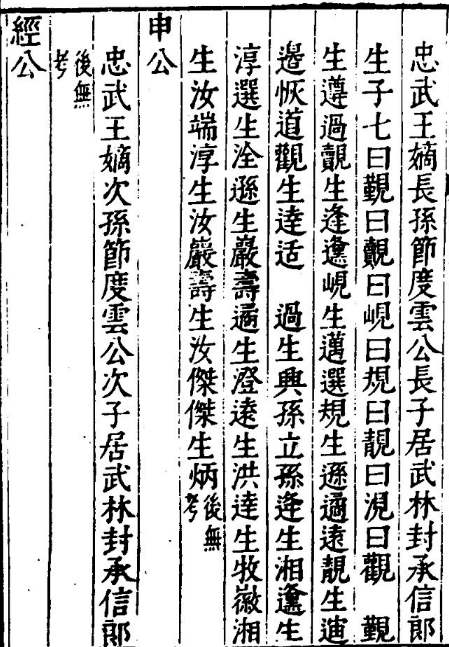 忠武王嫡長孫節度雲公長子居武林封承信郎
生子七曰覲曰覿曰峴曰規曰靚曰涀曰觀　覲
生遵過覿生逢邍峴生邁選規生遜遹遠靚生
邉恢道觀生達适　過生興孫立孫逢生湘邍生
淳選生淦遜生巖壽遹生澄遠生洪達生牧嶶湘
生汝端淳生汝巖壽生汝傑傑生炳後無考
申公
忠武王嫡次孫節度雲公次子居武林封承信郎
後無考
經公